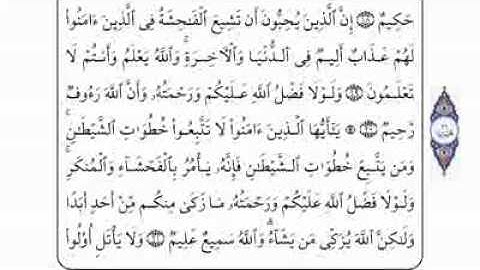 حَكِيمٌ ۝١٨ إِنَّ ٱلَّذِينَ يُحِبُّونَ أَن تَشِيعَ ٱلْفَٰحِشَةُ فِى ٱلَّذِينَ ءَامَنُوا۟
لَهُمْ عَذَابٌ أَلِيمٌ فِى ٱلدُّنْيَا وَٱلْءَاخِرَةِ ۚ وَٱللَّهُ يَعْلَمُ وَأَنتُمْ لَا
تَعْلَمُونَ ۝١٩ وَلَوْلَا فَضْلُ ٱللَّهِ عَلَيْكُمْ وَرَحْمَتُهُۥ وَأَنَّ ٱللَّهَ رَءُوفٌ
رَّحِيمٌ ۝٢٠ ۞ يَٰٓأَيُّهَا ٱلَّذِينَ ءَامَنُوا۟ لَا تَتَّبِعُوا۟ خُطُوَٰتِ ٱلشَّيْطَٰنِ ۚ
وَمَن يَتَّبِعْ خُطُوَٰتِ ٱلشَّيْطَٰنِ فَإِنَّهُۥ يَأْمُرُ بِٱلْفَحْشَآءِ وَٱلْمُنكَرِ ۚ
وَلَوْلَا فَضْلُ ٱللَّهِ عَلَيْكُمْ وَرَحْمَتُهُۥ مَا زَكَىٰ مِنكُم مِّنْ أَحَدٍ أَبَدًا
وَلَٰكِنَّ ٱللَّهَ يُزَكِّى مَن يَشَآءُ ۗ وَٱللَّهُ سَمِيعٌ عَلِيمٌ ۝٢١ وَلَا يَأْتَلِ أُو۟لُوا۟